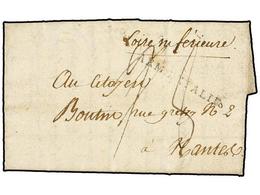 Loire inférieure.
ARM. D'ITALIE
Au Citoyen
Boutin, rue gretry N 2
à Nantes